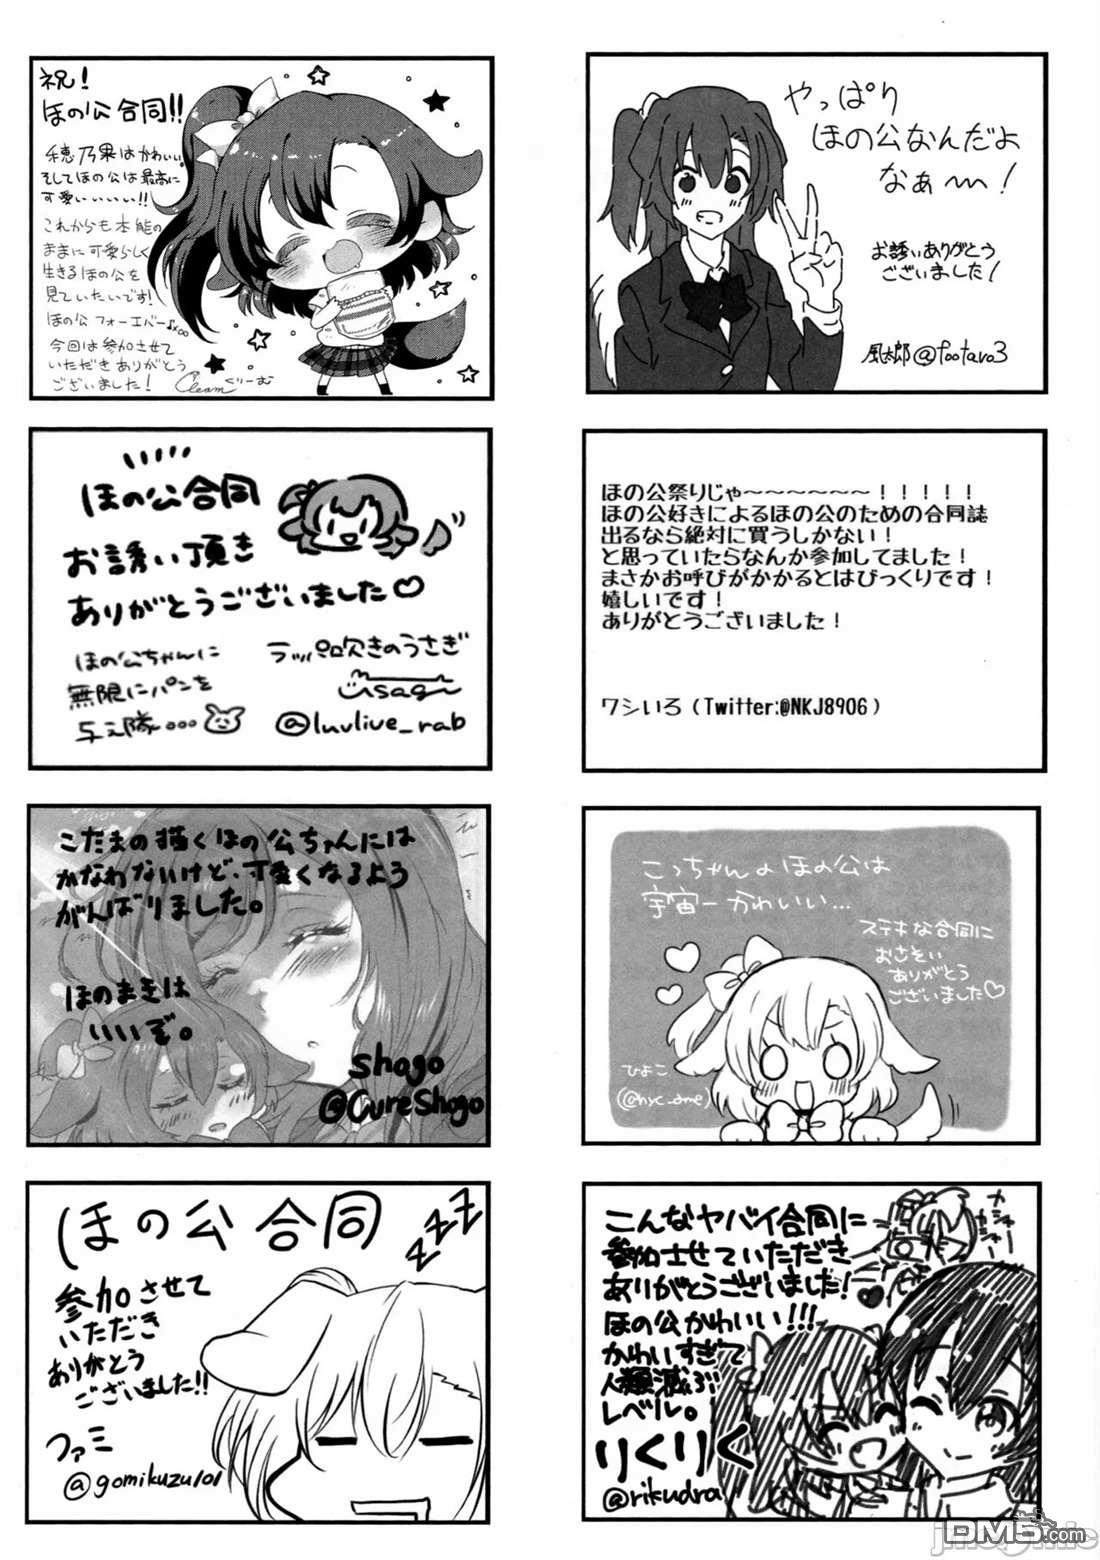 祝!
ほの公合同!!
穂乃果はかわいい。
そしてほの公は最高に
可愛いいいい!!
これからも本能の
ままに可愛らしく
生きるほの公を
見ていたいです!
ほの公フォーエバー
今回は参加させて
いただきありがとう
ございました!
Cleamくりーむ
やっぱり
ほの公なんだよ
なぁ〜!
お誘いありがとう
ございました!
風太郎@footaro3
ほの公合同
お誘い頂き
ありがとうございました♡
ほの公ちゃんに
無限にパンを
与え隊...
ラッパ吹きのうさぎ
usagi
@luvlive_rab
ほの公祭りじゃ〜〜〜〜〜〜!!!!!
ほの公好きによるほの公のための合同誌
出るなら絶対に買うしかない!
と思っていたらなんか参加してました!
まさかお呼びがかかるとはびっくりです!
嬉しいです!
ありがとうございました!
ワシいろ(Twitter:@NKJ8906)
こだまの描くほの公ちゃんには
かなわないけど、可愛くなるよう
がんばりました。
ほのまきは
いいぞ。
shogo
@CureShogo
こっちゃんのほの公は
宇宙一かわいい...
ステキな合同に
おさそい
ありがとう
ございました♡
ひよこ
ほの公合同
zzz
参加させて
いただき
ありがとう
ございました!!
ファミ
@gomikuzu101
こんなヤバイ合同に
参加させていただき
ありがとうございました!
ほの公かわいい!!!
かわいすぎて
人類滅ぶ
レベル。
りくりく
@rikudra
カシャ
カシャー
DM5.com